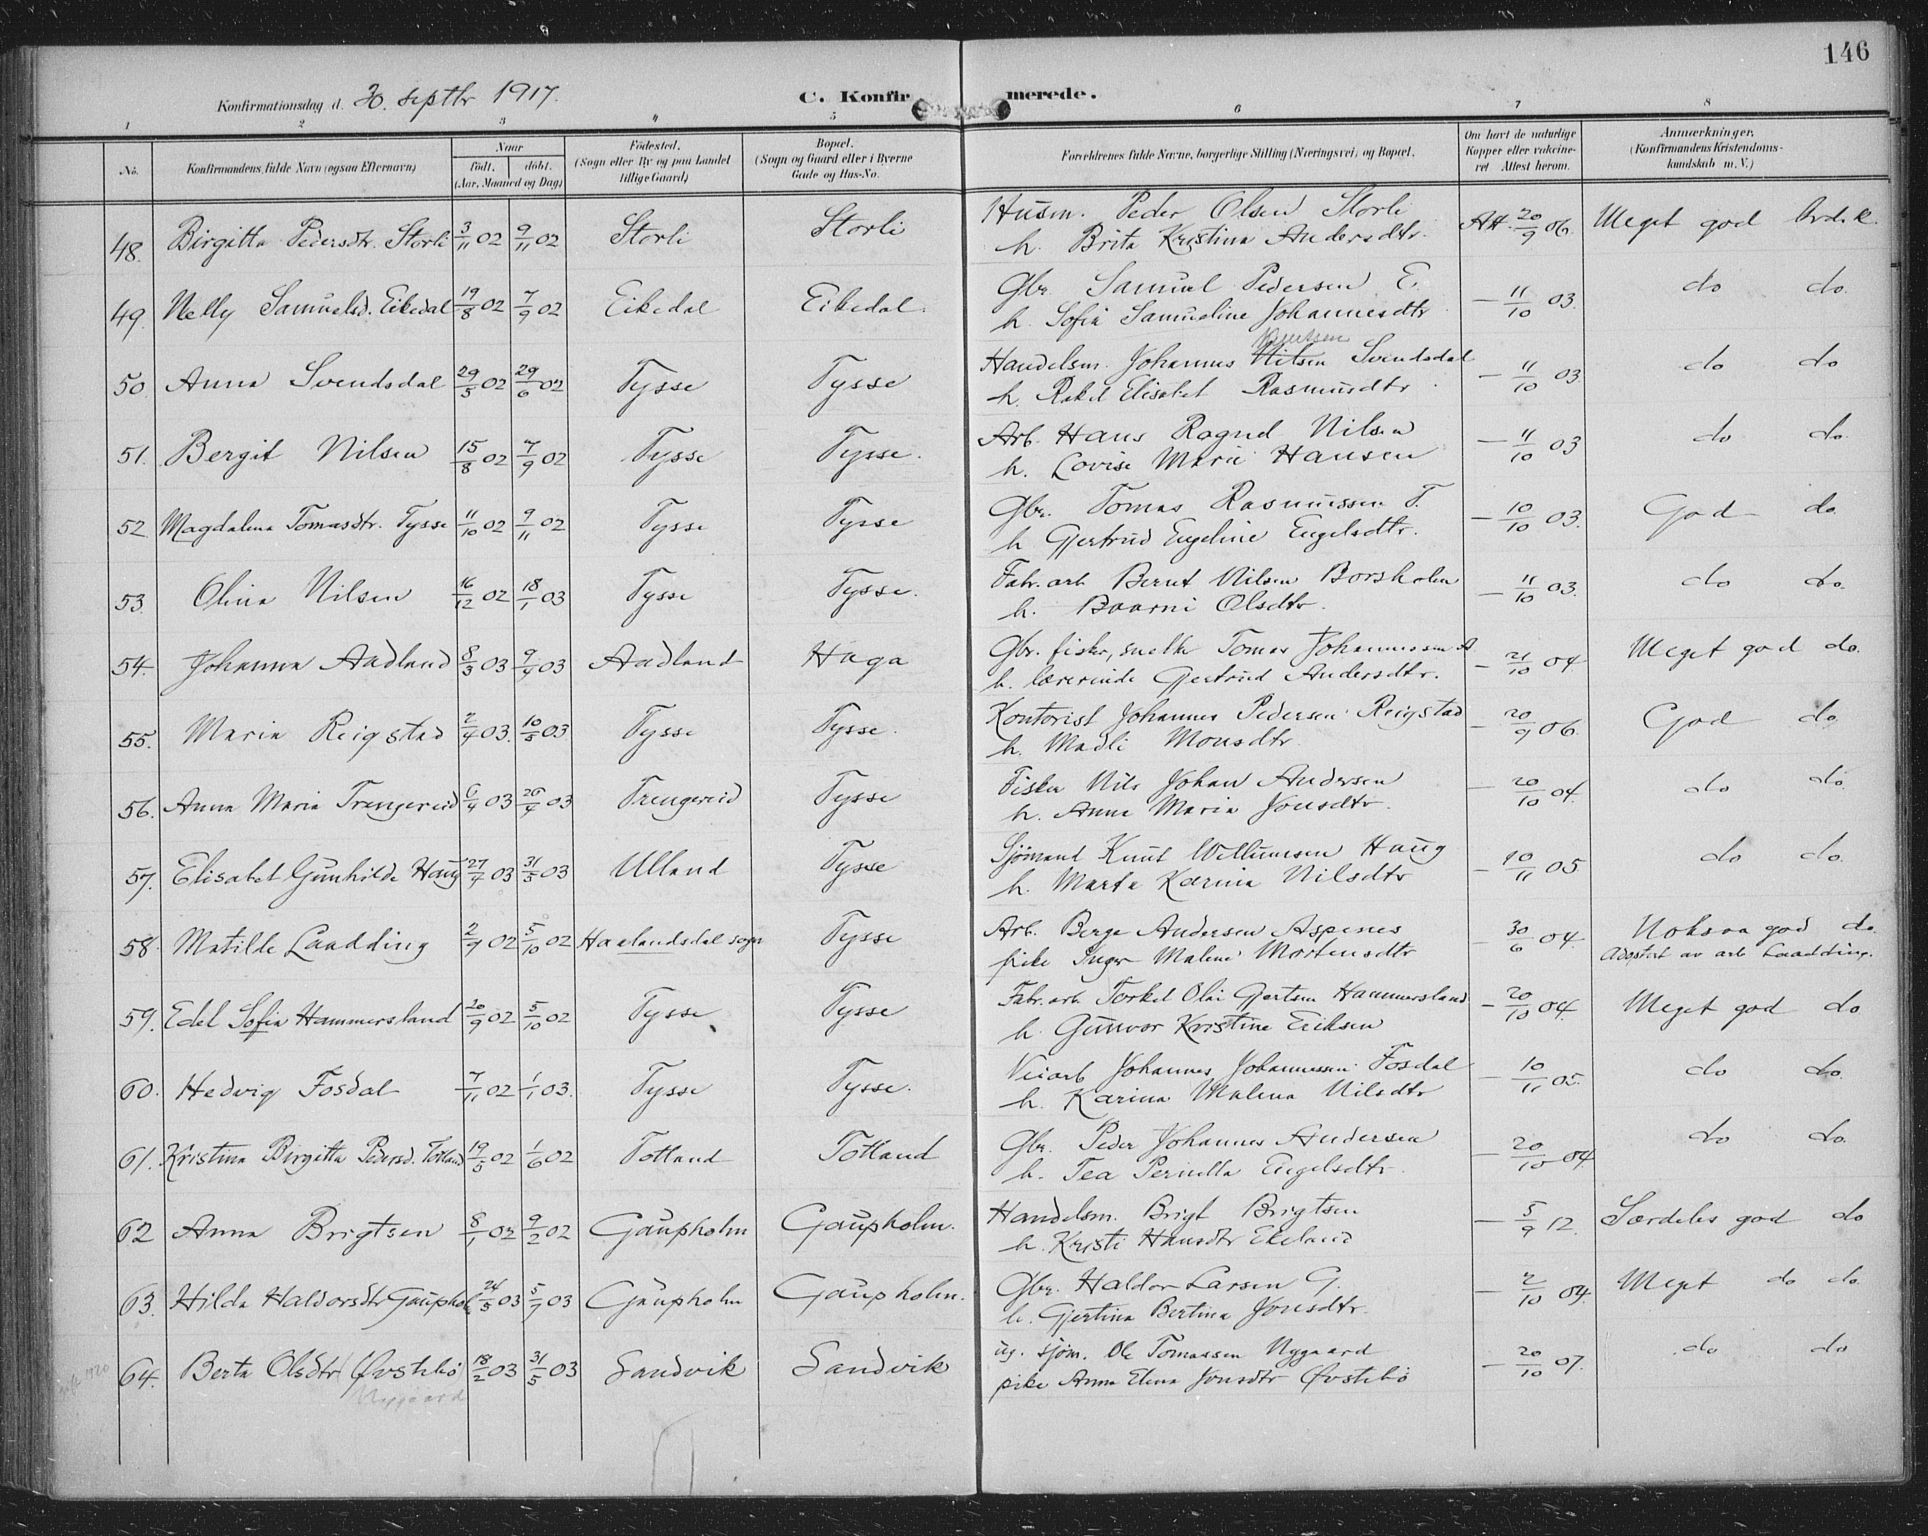 146
Konfirmationsdag d. 30. septbr 1917.
C. Konfirmerede.
1 2 3 4 5 6 7 8
No. Konfirmandens fulde Navn (ogsaa Efternavn)
Naar
født. døbt.
(Aar, Maaned og Dag)
Fødested.
(Sogn eller By og paa Landet
tillige Gaard)
Bopæl.
(Sogn og Gaard eller i Byerne
Gade og Hus-No.
Forældrenes fulde Navne, borgerlige Stilling (Næringsvei) og Bopæl.
Om havt de naturlige
Kopper eller vakcine-
ret Attest herom.
Anmærkninger.
(Konfirmandens Kristendoms-
kundskab m. V.)
48. Birgitta Pedersdtr. Storli 3/11 02 9/11 02 Storli Storli Husm. Peder Olsen Storli
h. Brita Kristina Andersdtr. Att. 20/9 06. Meget god
49. Nelly Samuelsd. Eikedal 19/8 02 7/9 02 Eikedal Eikedal. Gbr. Samuel Pedersen E.
h. Sofia Samueline Johannesdtr — 11/10 03. do do.
50. Anna Svendsdal 29/5 02 29/6 02 Tysse Tysse Handelsm. Johannes Nilsen Svendsdal
h. Rakel Elisabet Rasmusdtr. — 11/10 03. do do
51. Bergit Nilsen 15/8 02 7/9 02 Tysse Tysse. Arb. Hans Ragnd Nilsen
h. Lovise Marie Hansen — 11/10 03 do do.
52 Magdalena Tomasdtr. Tysse 11/10 02 9/11 02 Tysse Tysse Gbr. Tomas Rasmussen T.
h Gjertrud Engeline Engelsdtr. — 10/10 03. God do.
53. Olina Nilsen 16/12 02 18/1 03 Tysse Tysse. Fabr. arb. Bernt Nilsen Borsholm
h. Baarni Olsdtr. — 11/10 03. do do.
54. Johanna Aadland 8/3 03 9/4 03 Aadland Haga Gbr. fisker, snekk Tomas Johannessen A
h. lærerinde Gjertrud Andersdtr. — 21/10 04 Meget god do.
55. Maria Reigstad 2/4 03. 10/5 03 Tysse Tysse. Kontorist Johannes Pedersen Reigstad
h. Madli Monsdtr. — 20/9 06. God do.
56. Anna Maria Trengereid 6/4 03 26/4 03 Trengereid Tysse Fisker Nils Johan Andersen
h. Anne Maria Jonsdtr. — 20/10 04. do do.
57. Elisabet Gunhilde Haug 27/4 03 31/5 03 Ulland Tysse Sjømand Knut Villumsen Haug
h. Marta Karina Nilsdtr — 10/11 05 do do.
58. Matilde Laadding 2/9 02 5/10 02 Haalandsdal sogn Tysse Arb. Berge Andersen Aspenes
pike Inger Malene Mortensdtr — 30/6 04. Noksaa god do.
Adoptert av arb Laadding.
59. Edel Sofia Hammersland 20/9 02 5/10 02 Tysse Tysse Fabr. arb Torkel Olai Gjertsen Hammersland
h. Gunvor Kristine Eriksen — 20/10 04. Meget god do
60. Hedvig Fosdal 7/11 02 1/1 03. Tysse Tysse. Veiarb Johannes Johannessen Fosdal
h. Karina Malena Nilsdtr — 10/11 05. do do.
61. Kristina Birgitta Pedersd. Totland 19/5 02 1/6 02 Totland Totland Gbr. Peder Johannes Andersen
h. Tea Pernilla Engelsdtr. — 20/10 04 do do.
62 Anna Brigtsen 8/1 02 9/2 02 Gaupholm Gaupholm. Handelsm. Brigt Brigtsen
h. Kristi Hansdtr Ekeland — 5/9 12. Særdeles god do
63. Hilda Haldorsdtr Gaupholm 24/5 03 5/7 03 Gaupholm Gaupholm. Gbr. Haldor Larsen G.
h. Gjertina Bertina Jonsdtr. — 2/10 04. Meget do do.
64. Berta Olsdtr Øvstebø 18/2 03 31/5 03 Sandvik Sandvik ug. sjøm. Ole Tomassen Nygaard
pike Anna Elena Jonsdtr Øvstebø — 20/10 07. do do
Nygaard